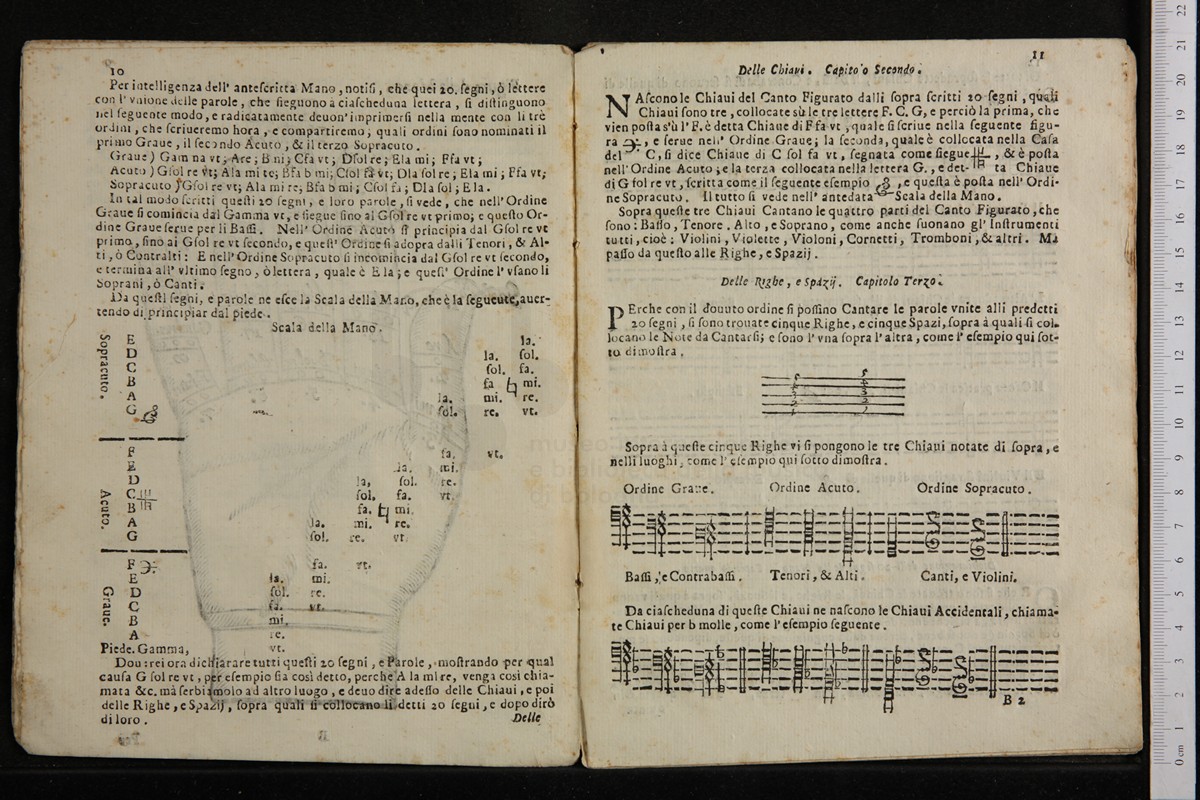 10
Per intelligenza dell' antescritta Mano, notisi, che quei 20. segni, ò lettere
con l' vnione delle parole, che sieguono à ciascheduna lettera, si distinguono
nel seguente modo, e radicatamente deuon' imprimersi nella mente con li trè
ordini, che scriueremo hora, e compartiremo; quali ordini sono nominati il
primo Graue, il secondo Acuto, & il terzo Sopracuto.
Graue) Gamma vt; Are; B mi; Cfa vt; Dsol re; Ela mi; Ffa vt;
Acuto) Gsol re vt; Ala mi re; Bfa b mi; Csol fa vt; Dla sol re; Ela mi; Ffa vt;
Sopracuto) Gsol re vt; Ala mi re; Bfa b mi; Csol fa; Dla sol; Ela.
In tal modo scritti questi 20 segni, e loro parole, si vede, che nell' Ordine
Graue si comincia dal Gamma vt, e siegue sino al Gsol re vt primo; e questo Or-
dine Graue serue per li Bassi. Nell' Ordine Acuto si principia dal Gsol re vt
primo, sino ai Gsol re vt secondo, e quest' Ordine si adopra dalli Tenori, & Al-
ti, ò Contralti: E nell' Ordine Sopracuto si incomincia dal Gsol re vt secondo,
e termina all' vltimo segno, ò lettera, quale è Ela; e quest' Ordine l' vsano li
Soprani, ò Canti.
Da questi segni, e parole ne esce la Scala della Mano, che è la seguente, auer-
tendo di principiar dal piede.
Scala della Mano.
Sopracuto.
E la.
D la. sol.
C sol. fa.
B fa ♮ mi.
A la. mi. re.
G sol. re. vt.
Acuto.
F fa. vt.
E la. mi.
D la, sol. re.
C sol. fa. vt.
B fa. ♮ mi.
A la. mi. re.
G sol. re. vt.
Graue.
F fa. vt.
E la. mi.
D sol. re.
C fa. vt.
B mi.
A re.
Piede. Gamma, vt.
Dourei ora dichiarare tutti questi 20 segni, e Parole, mostrando per qual
causa G sol re vt, per esempio sia così detto, perche A la mi re, venga così chia-
mata &c. mà serbiamolo ad altro luogo, e deuo dire adesso delle Chiaui, e poi
delle Righe, e Spazij, sopra quali si collocano li detti 20 segni, e dopo dirò
di loro.
Delle
11
Delle Chiaui. Capitolo Secondo.
NAscono le Chiaui del Canto Figurato dalli sopra scritti 20 segni, quali
Chiaui sono tre, collocate sù le tre lettere F. C. G, e perciò la prima, che
vien posta sù l' F. è detta Chiaue di F fa vt, quale si scriue nella seguente figu-
ra , e serue nell' Ordine Graue; la seconda, quale è collocata nella Casa
del C, si dice Chiaue di C sol fa vt, segnata come siegue , & è posta
nell' Ordine Acuto; e la terza collocata nella lettera G., e det- ta Chiaue
di G sol re vt, scritta come il seguente esempio , e questa è posta nell' Ordi-
ne Sopracuto. Il tutto si vede nell' antedata Scala della Mano.
Sopra queste tre Chiaui Cantano le quattro parti del Canto Figurato, che
sono: Basso, Tenore. Alto, e Soprano, come anche suonano gl' Instrumenti
tutti, cioè: Violini, Violette, Violoni, Cornetti, Tromboni, & altri. Mà
passo da questo alle Righe, e Spazij.
Delle Righe, e Spazij. Capitolo Terzo.
PErche con il douuto ordine si possino Cantare le parole vnite alli predetti
20 segni, si sono trouate cinque Righe, e cinque Spazi, sopra à quali si col-
locano le Note da Cantarsi; e sono l' vna sopra l' altra, come l' esempio qui sot-
to dimostra.
Sopra à queste cinque Righe vi si pongono le tre Chiaui notate di sopra, e
nelli luoghi, come l' esempio qui sotto dimostra.
Ordine Graue. Ordine Acuto. Ordine Sopracuto.
Bassi, e Contrabassi. Tenori, & Alti. Canti, e Violini.
Da ciascheduna di queste Chiaui ne nascono le Chiaui Accidentali, chiama-
te Chiaui per b molle, come l' esempio seguente.
B 2